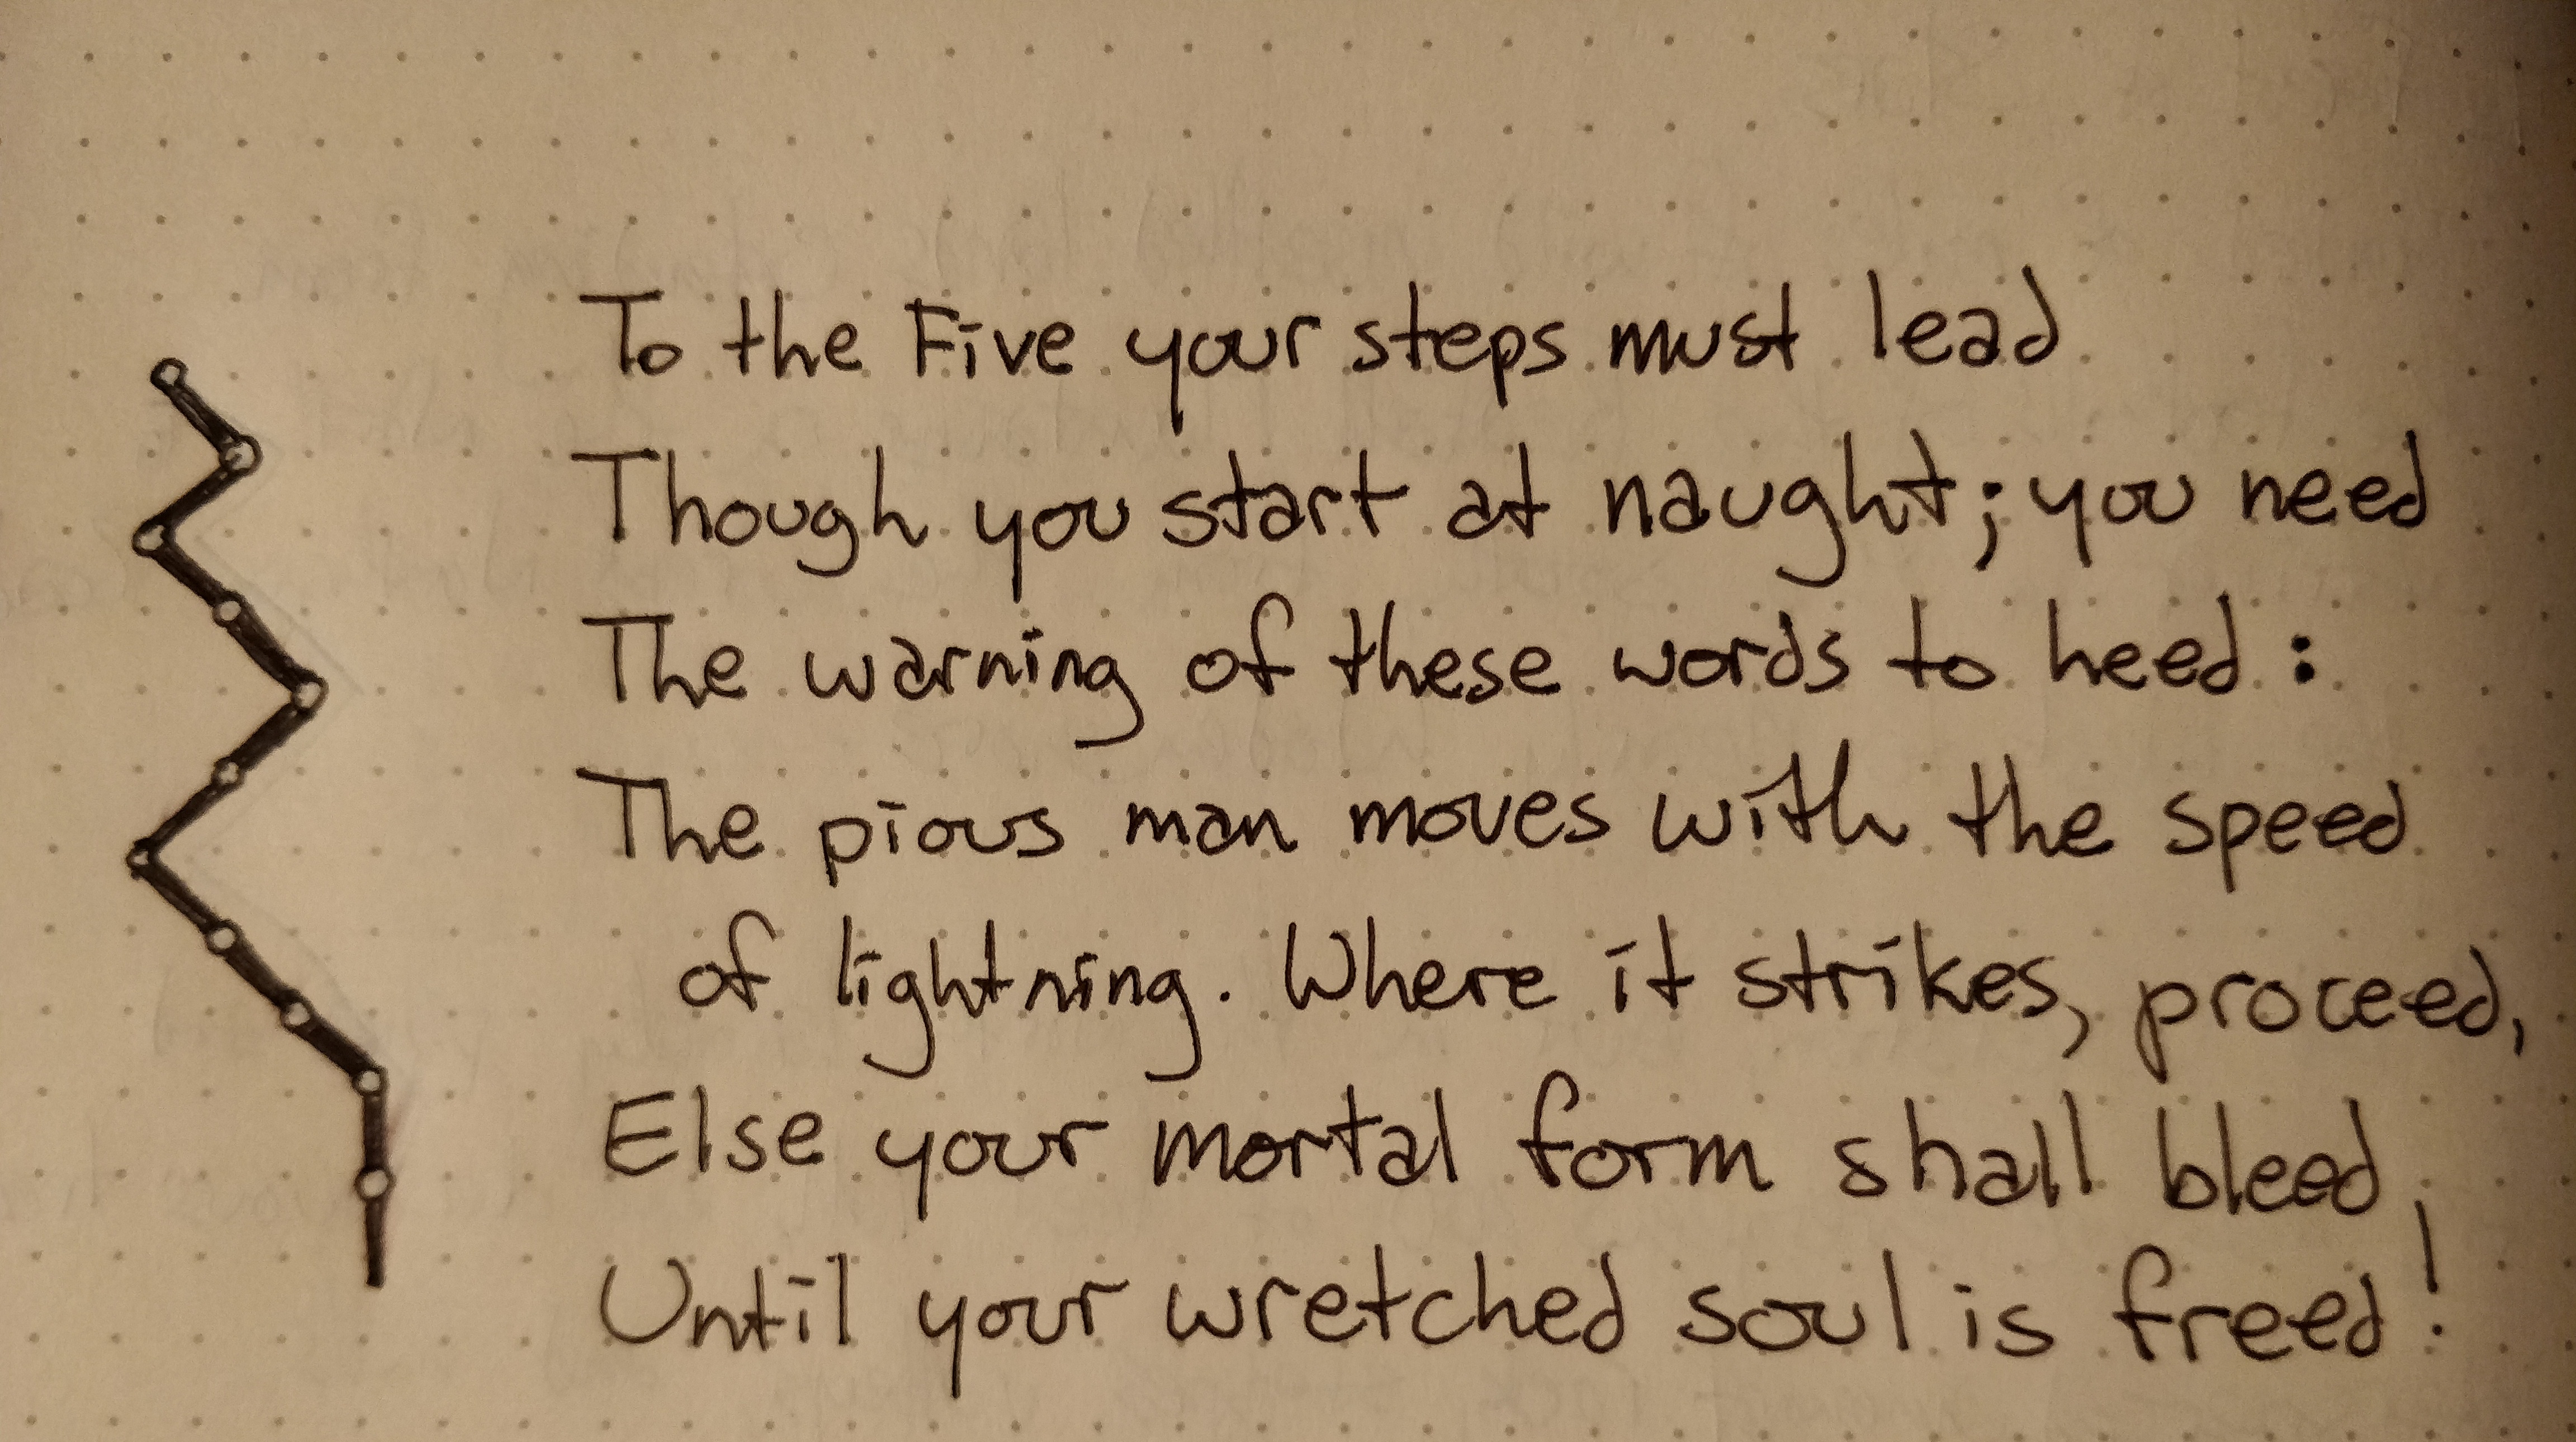 To the Five your steps must lead
Though you start at naught; you need
The warning of these words to heed:
The pious man moves with the speed
of lightning. Where it strikes, proceed,
Else your mortal form shall bleed,
Until your wretched soul is freed!